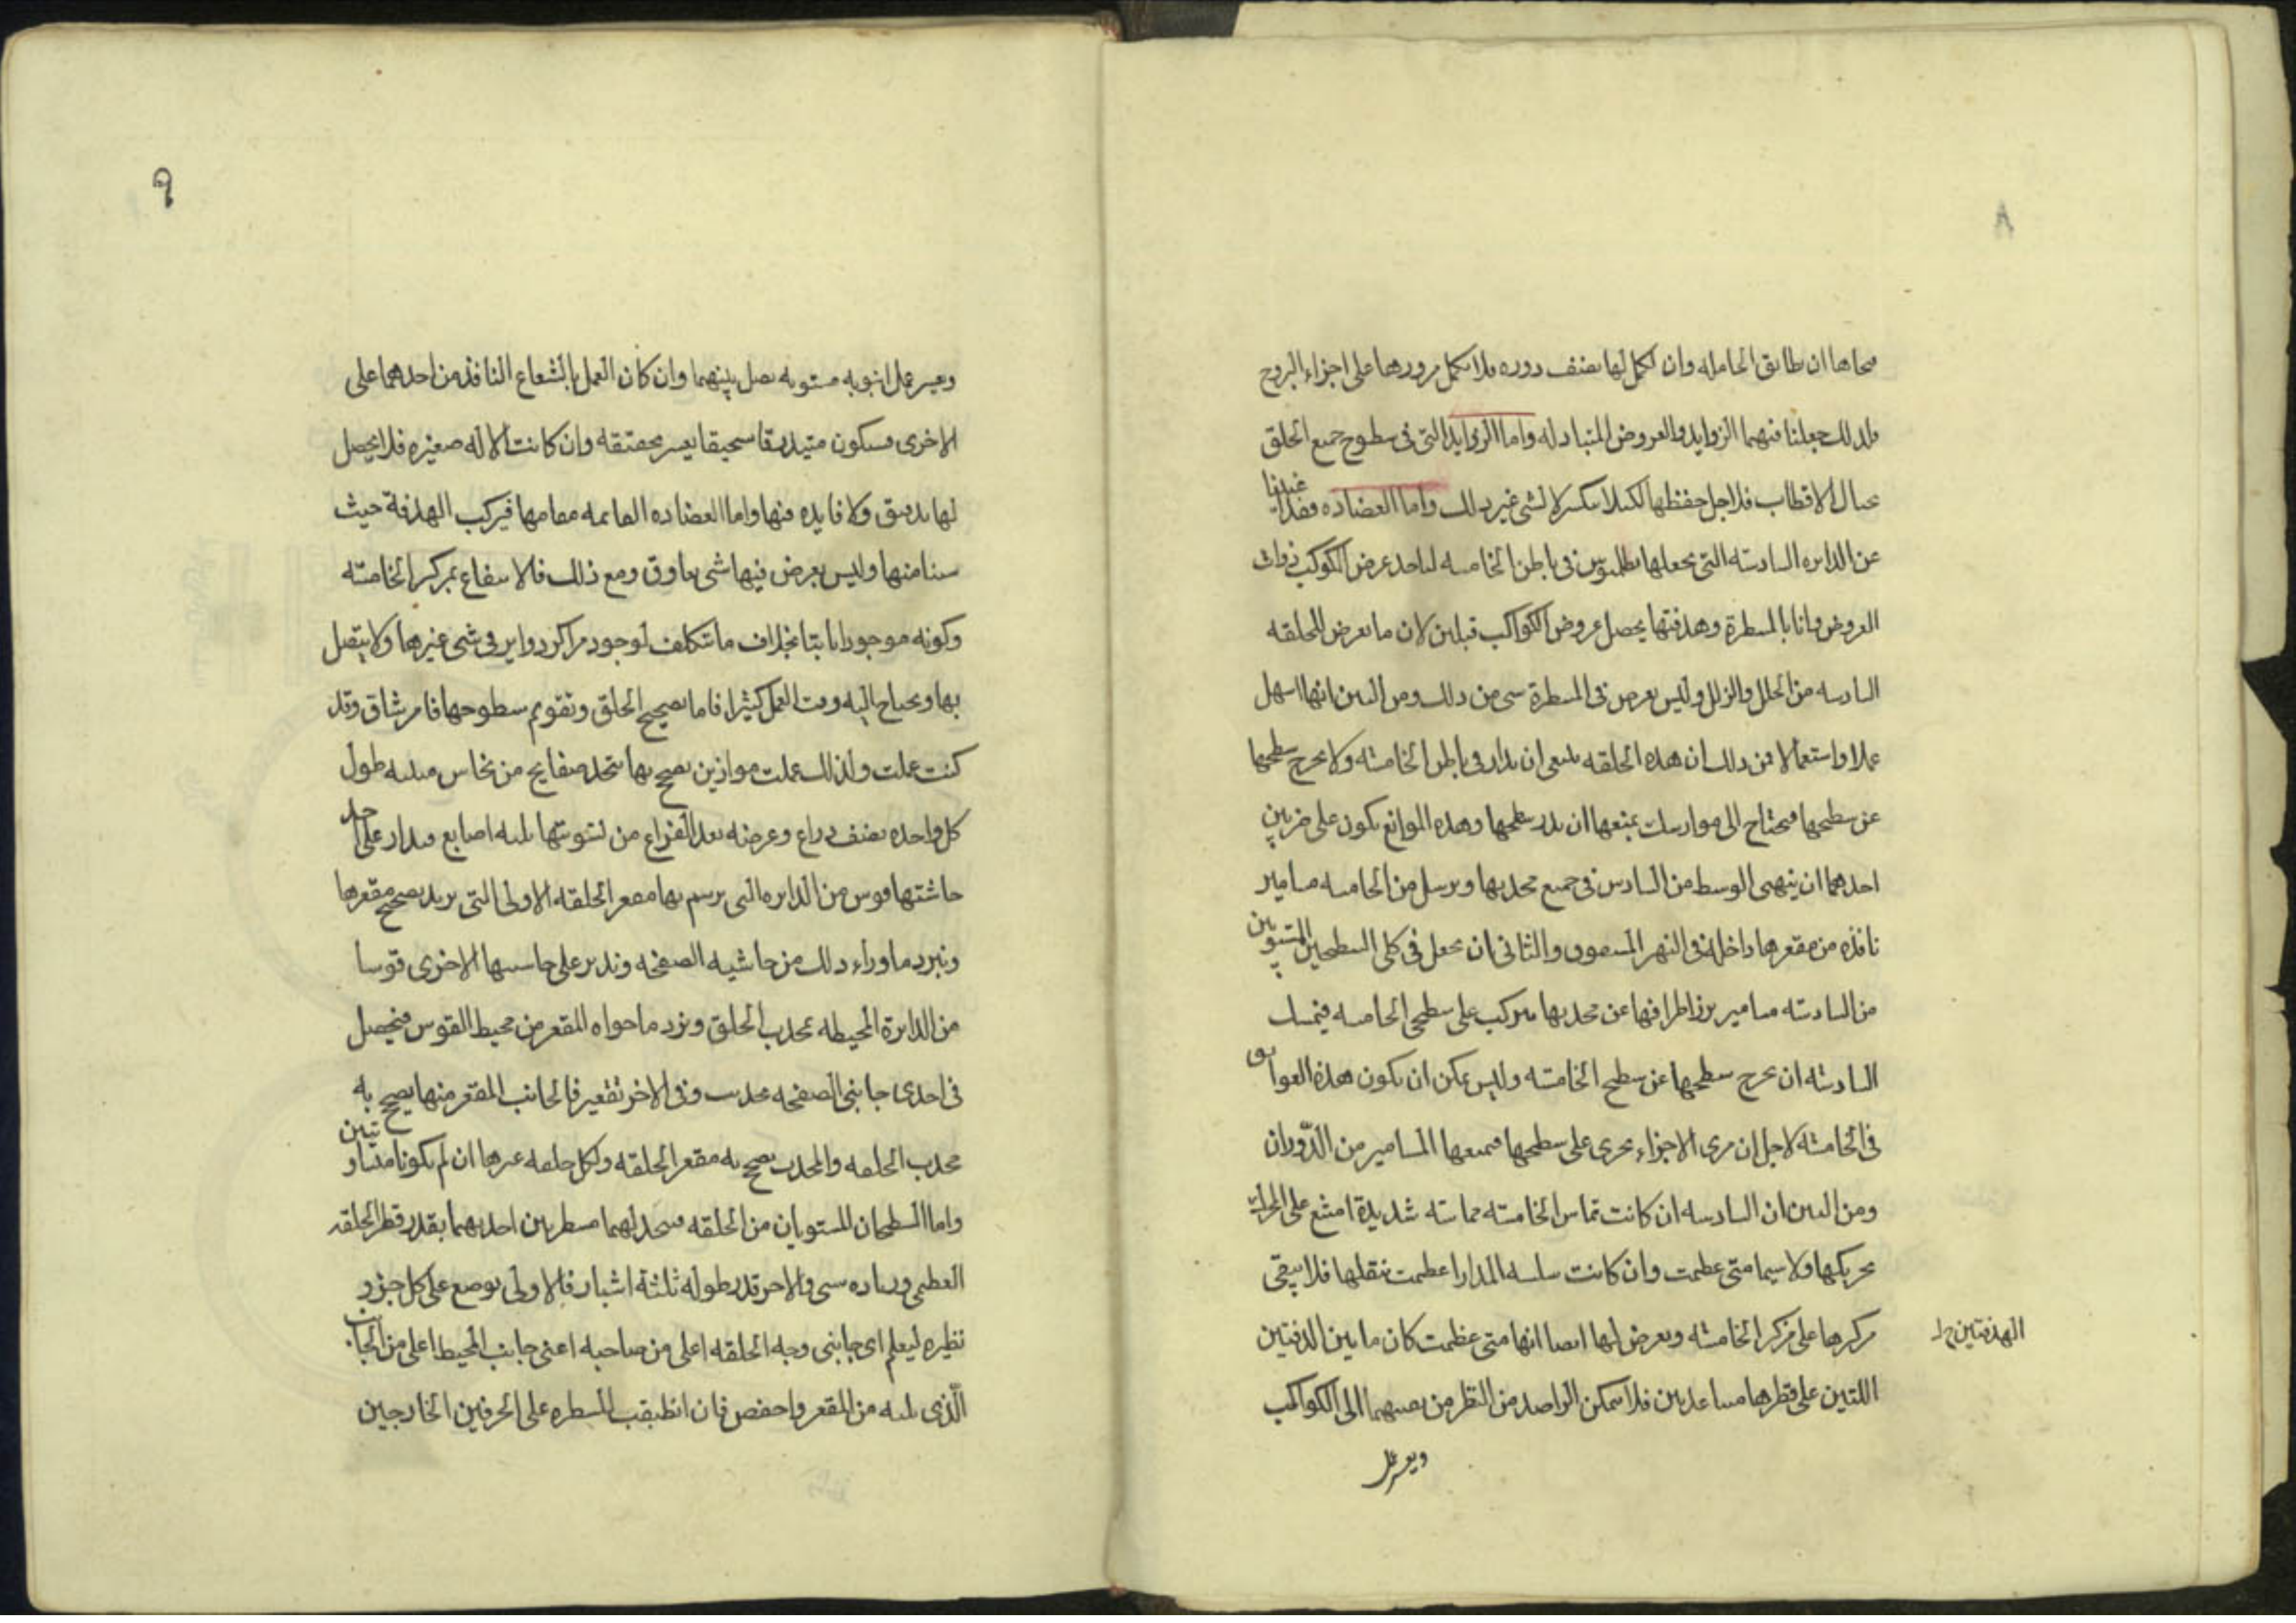 ٨
ان طابق الحامله وان لكل لها نصف دوره فلا يكمل مرورها على اجزاء البروج
جعلنا فيهما الزوايد والعروض المتبادله واما الزوايد التى فى سطوح جميع الحلق
الاقطاب فلاجل حفظها لكيلا ينكسر لا لشى غير ذلك واما العضاده فقد عنينا
عن الدايره السادسه التى يجعلها بطلميوس فى باطن الخامسه عرض الكوكب ذوات
العروض فانا بالمسطرة وهدفتها يحصل عروض الكواكب لان ما يعرض للحلقه
السادسه من الخلل والزلل وليس يعرض فى المسطرة شى من ذلك ومن البين انها اسهل
عملا واستعمالا فمن ذلك ان هذه الحلقه ينبغى ان يدار فى باطن الخامسه ولا يخرج سطحها
عن سطحها فيحتاج الى موانع يمنعها ان سطحها وهذه الموانع يكون على ضربين
احدهما ان ينتهى الوسط من السادس فى جميع محدبها ويرسل من الخامسه مسامير
نافذه من مقعرها داخله فى النهر والثانى ان يجعل فى كلى السطحين المستويين
من السادسه مسامير يبرز اطرافها عن محدبها يتركب على سطحى الخامسه فيمسك
السادسه ان يخرج سطحها عن سطح الخامسه وليس يمكن ان يكون هذه العوايق
فى الخامسه لاجل ان مرى الاجزاء يجرى على سطحها فيمنعها المسامير من الدّوران
ومن البين ان السادسه ان كانت تماس الخامسه مماسه شديدة امتنع على
تحريكها ولا سيما متى عظمت وان كانت سلسه المدار عظمت ثقلها فلا يبقى
مركزها على مركز الخامسه ويعرض لها ايضا انها متى عظمت كان ما بين الدفتين
الهدفتين
اللتين على قطرها متباعدين فلا يمكن الراصد من النظر من ثقبيهما الى الكواكب
ويعسر عمل
٩
ويعسر عمل انبوبه مستويه يصل بينهما وان كان العمل بالشعاع النافذ من احدهما على
الاخرى فيكون سحيقا يعسر تحقيقه وان كانت الاله صغيره فلا يحصل
لها تدقيق ولا فايده فيها واما العضاده القايمه مقامها فيركب الهدفة حيث
شئنا منها وليس يعرض فيها شى يعاوق ومع ذلك فالانتفاع بمركز الخامسه
وكونه موجودا ثابتا بخلاف ما تتكلف لوجود مراكز دواير فى شى غيرها ولا يتصل
بها ويحتاج اليه وقت العمل كثيرا فاما تصحيح الحلق وتقويم سطوحها فامر شاق وقد
كنت عملت ولذلك عملت موازين يصح بها يتخذ صفايح من نحاس طول
كل واحده نصف ذراع وعرضه بعد الفراغ من تسويتها ثلثه اصابع ويدار على احد
حاشيتها قوس من الدايره التى يرسم بها مقعر الحلقه الاولى التى يريد تصحيح مقعرها
ونبرد ما وراء ذلك من حاشيه الصفحه وندير على حاشيتها الاخرى قوسا
من الدايرة المحيطه بمحدب الحلق ونبرد ما حواه المقعر من محيط القوس فيحصل
فى احدى جانبى الصفحه محدب وفى الاخر تقعير فالجانب المقعر منها يصح به
محدب الحلقه والمحدب يصح به مقعر الحلقه ولكل حلقه غيرها ان لم يكونا متساويتين
واما السطحان المستويان من الحلقه فيتخذ لهما مسطرتين احديهما بقدر قطر الحلقه
العظمى وزياده شى والاخر قدر طوله ثلثة اشبار فالاولى يوضع على كل جزو
نظيره ليعلم اى جانبى وجه الحلقه اعلى من صاحبه اعنى جانب المحيط اعلى من الجانب
الّذى يليه من المقعر واخفض فان انطبقت المسطره على الحرفين الخارجين